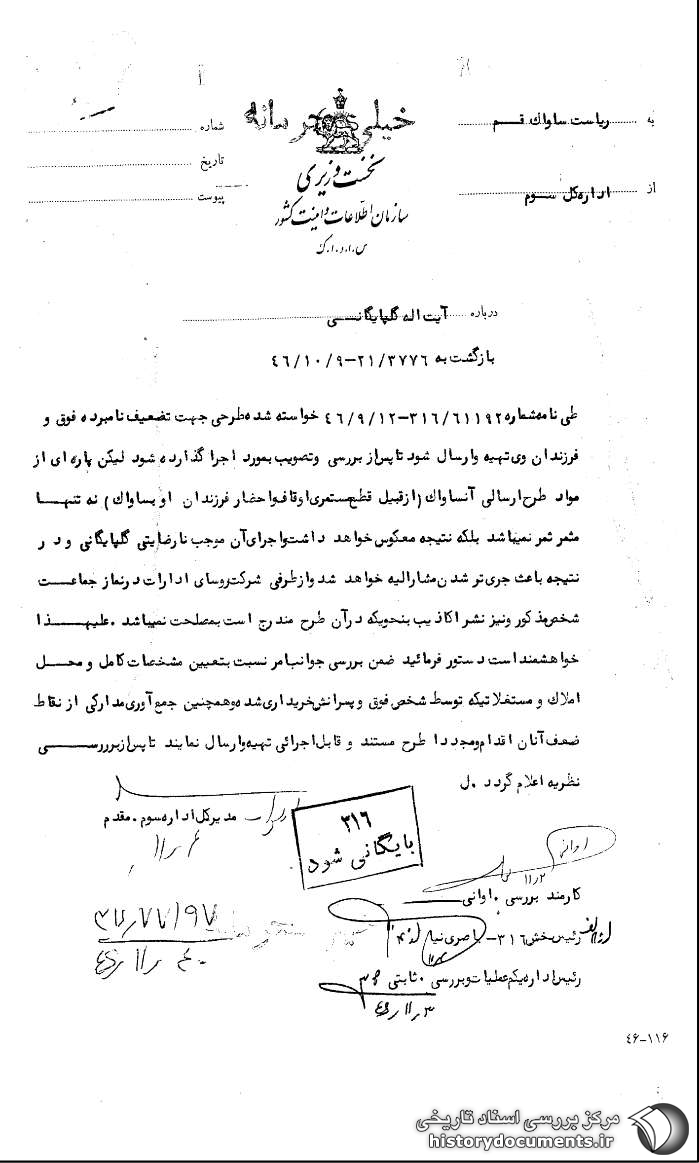 خیلی محرمانه
به ریاست ساواك قم
شماره
نخست وزیری
تاریخ
از اداره کل سوم
سازمان اطلاعات و امنیت کشور
پیوست
س.ا.و.ا.ک
درباره آیت اله گلپایگانی
بازگشت به ۲۱/۳۷۷۶-۴۶/۱۰/۹
طی نامه شماره ۳۱۶/۶۱۱۹۲-۴۶/۹/۱۲ خواسته شده طرحی جهت تضعیف نامبرده فوق و
فرزندان وی تهیه و ارسال شود تا پس از بررسی وتصویب بمورد اجرا گذارده شود لیکن پاره ای از
مواد طرح ارسالی آنساواك (ازقبیل قطع مستمری اوقاف و احضار فرزندان او بساواك) نه تنها
مثمر ثمر نمیباشد بلکه نتیجه معکوس خواهد داشت و اجرای آن موجب نارضایتی گلپایگانی و در
نتیجه باعث جری تر شدن مشارالیه خواهد شد و ازطرفی شرکت روسای ادارات در نماز جماعت
شخص مذکور و نیز نشر اکاذیب بنحویکه در آن طرح مندرج است بمصلحت نمیباشد . علیهذا
خواهشمند است دستور فرمائید ضمن بررسی جوانب امر نسبت بتعیین مشخصات کامل و محل
املاك و مستغلاتیکه توسط شخص فوق و پسرانش خریداری شده و همچنین جمع آوری مدارکی از نقاط
ضعف آنان اقدام و مجددا طرح مستند و قابل اجرائی تهیه و ارسال نمایند تا پس از بررسی
نظریه اعلام گردد . ل
مدیر کل اداره سوم . مقدم
۳۱۶
بایگانی شود
۱۱/۲
کارمند بررسی . اوانی
رئیس بخش ۳۱۶- ناصری نیا
رئیس اداره یکم عملیات و بررسی . ثابتی
۴۶-۱۱۶
مرکز بررسی اسناد تاریخی
historydocuments.ir